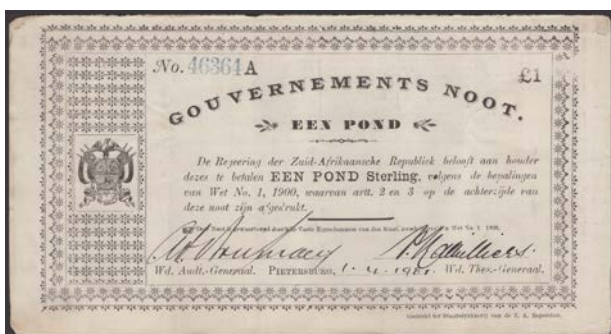 No. 46364 A
£1
GOUVERNEMENTS NOOT.
EEN POND
De Regeering der Zuid-Afrikaansche Republiek belooft aan houder
dezes te betalen EEN POND Sterling, volgens de bepalingen
van Wet No. 1, 1900, waarvan artt. 2 en 3 op de achterzijde van
deze noot zijn afgedrukt.
Wd. Audt.-Generaal. PIETERSBURG, 1. 4. 1901. Wd. Thes.-Generaal.
Gedrukt ter Staatsdrukkerij van de Z. A. Republiek.